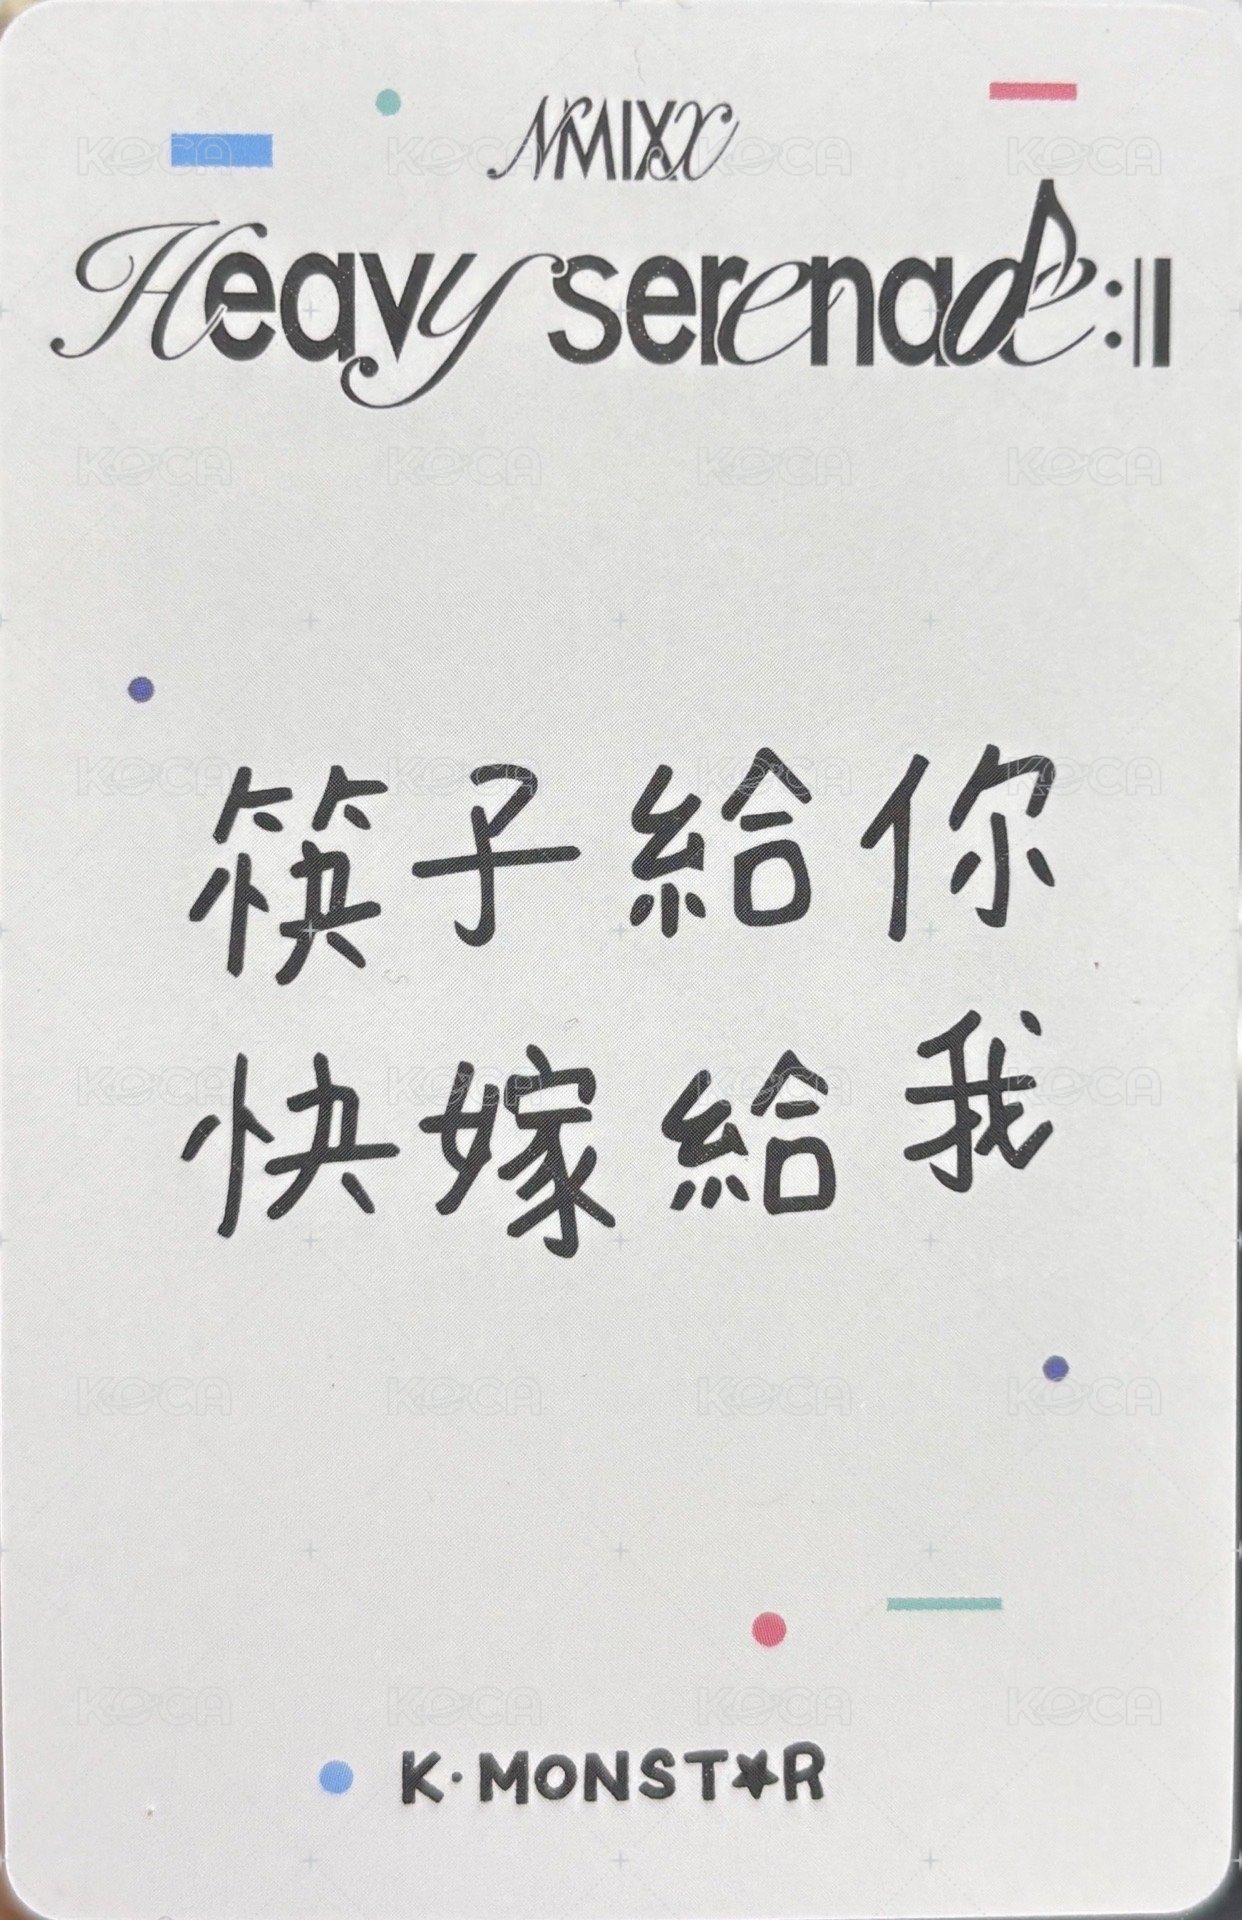 NMIXX
Heavy Serenade
筷子給你
快嫁給我
K·MONST★R
KOCA